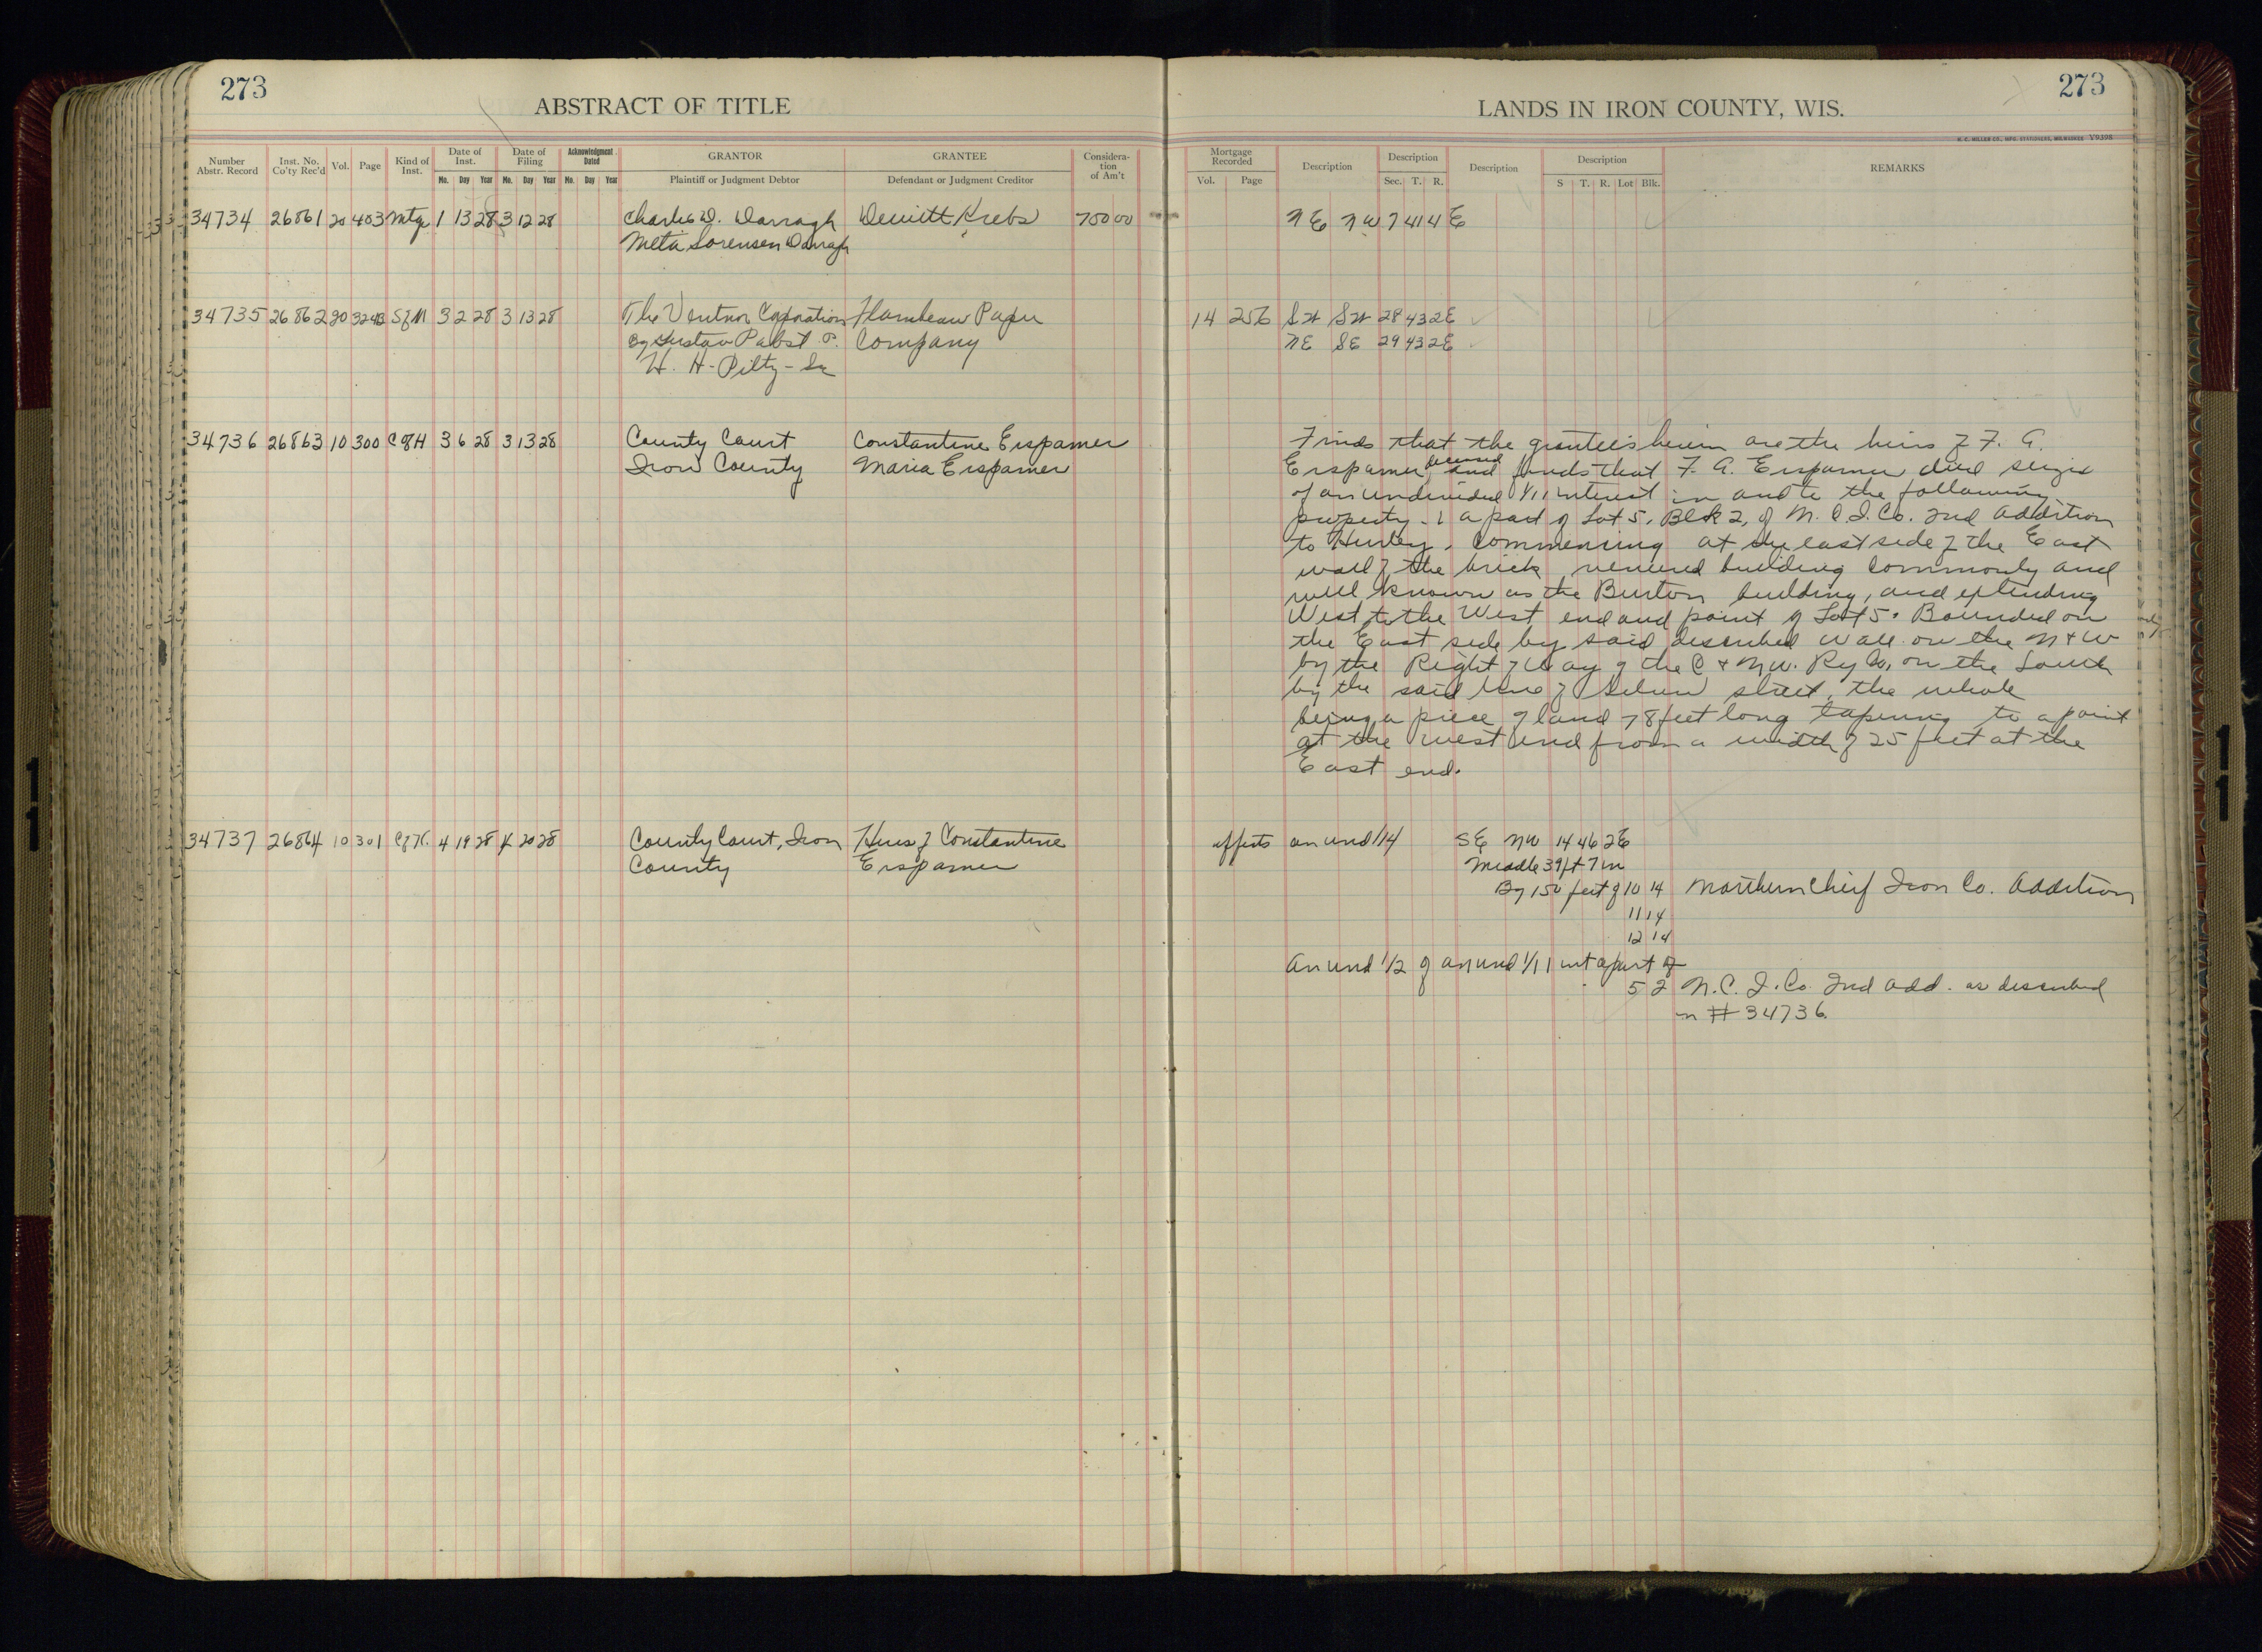 273
ABSTRACT OF TITLE
LANDS IN IRON COUNTY, WIS.
273
H. C. MILLER CO., MFG. STATIONERS, MILWAUKEE V9398
Number Abstr. Record
Inst. No. Co'ty Rec'd
Vol.
Page
Kind of Inst.
Date of Inst.
Mo. Day Year
Date of Filing
Mo. Day Year
Acknowledgment Dated
Mo. Day Year
GRANTOR
Plaintiff or Judgment Debtor
GRANTEE
Defendant or Judgment Creditor
Considera-tion of Am't
Mortgage Recorded
Vol. Page
Description
Description
Sec. T. R.
Description
Description
S T. R. Lot Blk.
REMARKS
34734 26861 20 403 Mtge 1 13 28 3 12 28 Charles D. Darragh Dewitt Krebs 750 00 NE NW 7 41 4 E
Meta Sorensen Darragh
34735 26862 20 S of M 3 2 28 3 13 28 The Ventnor Corporation Flambeau Paper 14 256 SW SW 28 43 2E
By Gustav Pabst P. Company NE SE 29 43 2E
H. H. Piltz - Sec
34736 26863 10 300 C of H 3 6 28 3 13 28 County Court Constantine Erspamer Finds that the grantees herein are the heirs of F. A.
Iron County Maria Erspamer Erspamer deceased and finds that F. A. Erspamer died seized
of an undivided 1/11 interest in and to the following
property - a part of Lot 5, Blk 2, of N. C. I. Co. 2nd Addition
to Hurley, Commencing at the east side of the East
wall of the brick veneered building commonly and
well known as the Burton building, and extending
West to the West end and point of Lot 5. Bounded on
the East side by said described wall on the N & W
by the Right of Way of the C & N.W. Ry Co, on the South
by the said line of Silver street, the whole
being a piece of land 78 feet long tapering to a point
at the west end from a width of 25 feet at the
East end.
34737 26864 10 301 C of H. 4 19 28 4 20 28 County Court, Iron Heirs of Constantine affects an und 1/4 SE NW 14 46 2E
County Erspamer Middle 39 ft 7 in
By 150 feet of 10 14 Northern Chief Iron Co. Addition
11 14
12 14
An und 1/2 of an und 1/11 int a part of
5 2 N. C. I. Co. 2nd Add. as described
in # 34736